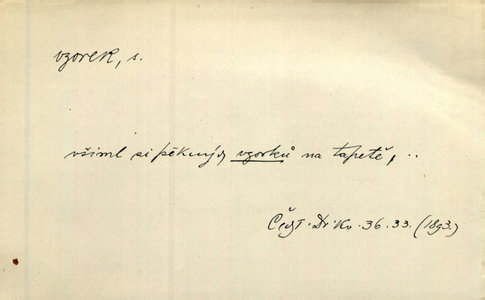 vzorek, s.
všiml si pěkných vzorků na tapetě, ..
Čes. Dr. Kv. 36. 33. (1893.)